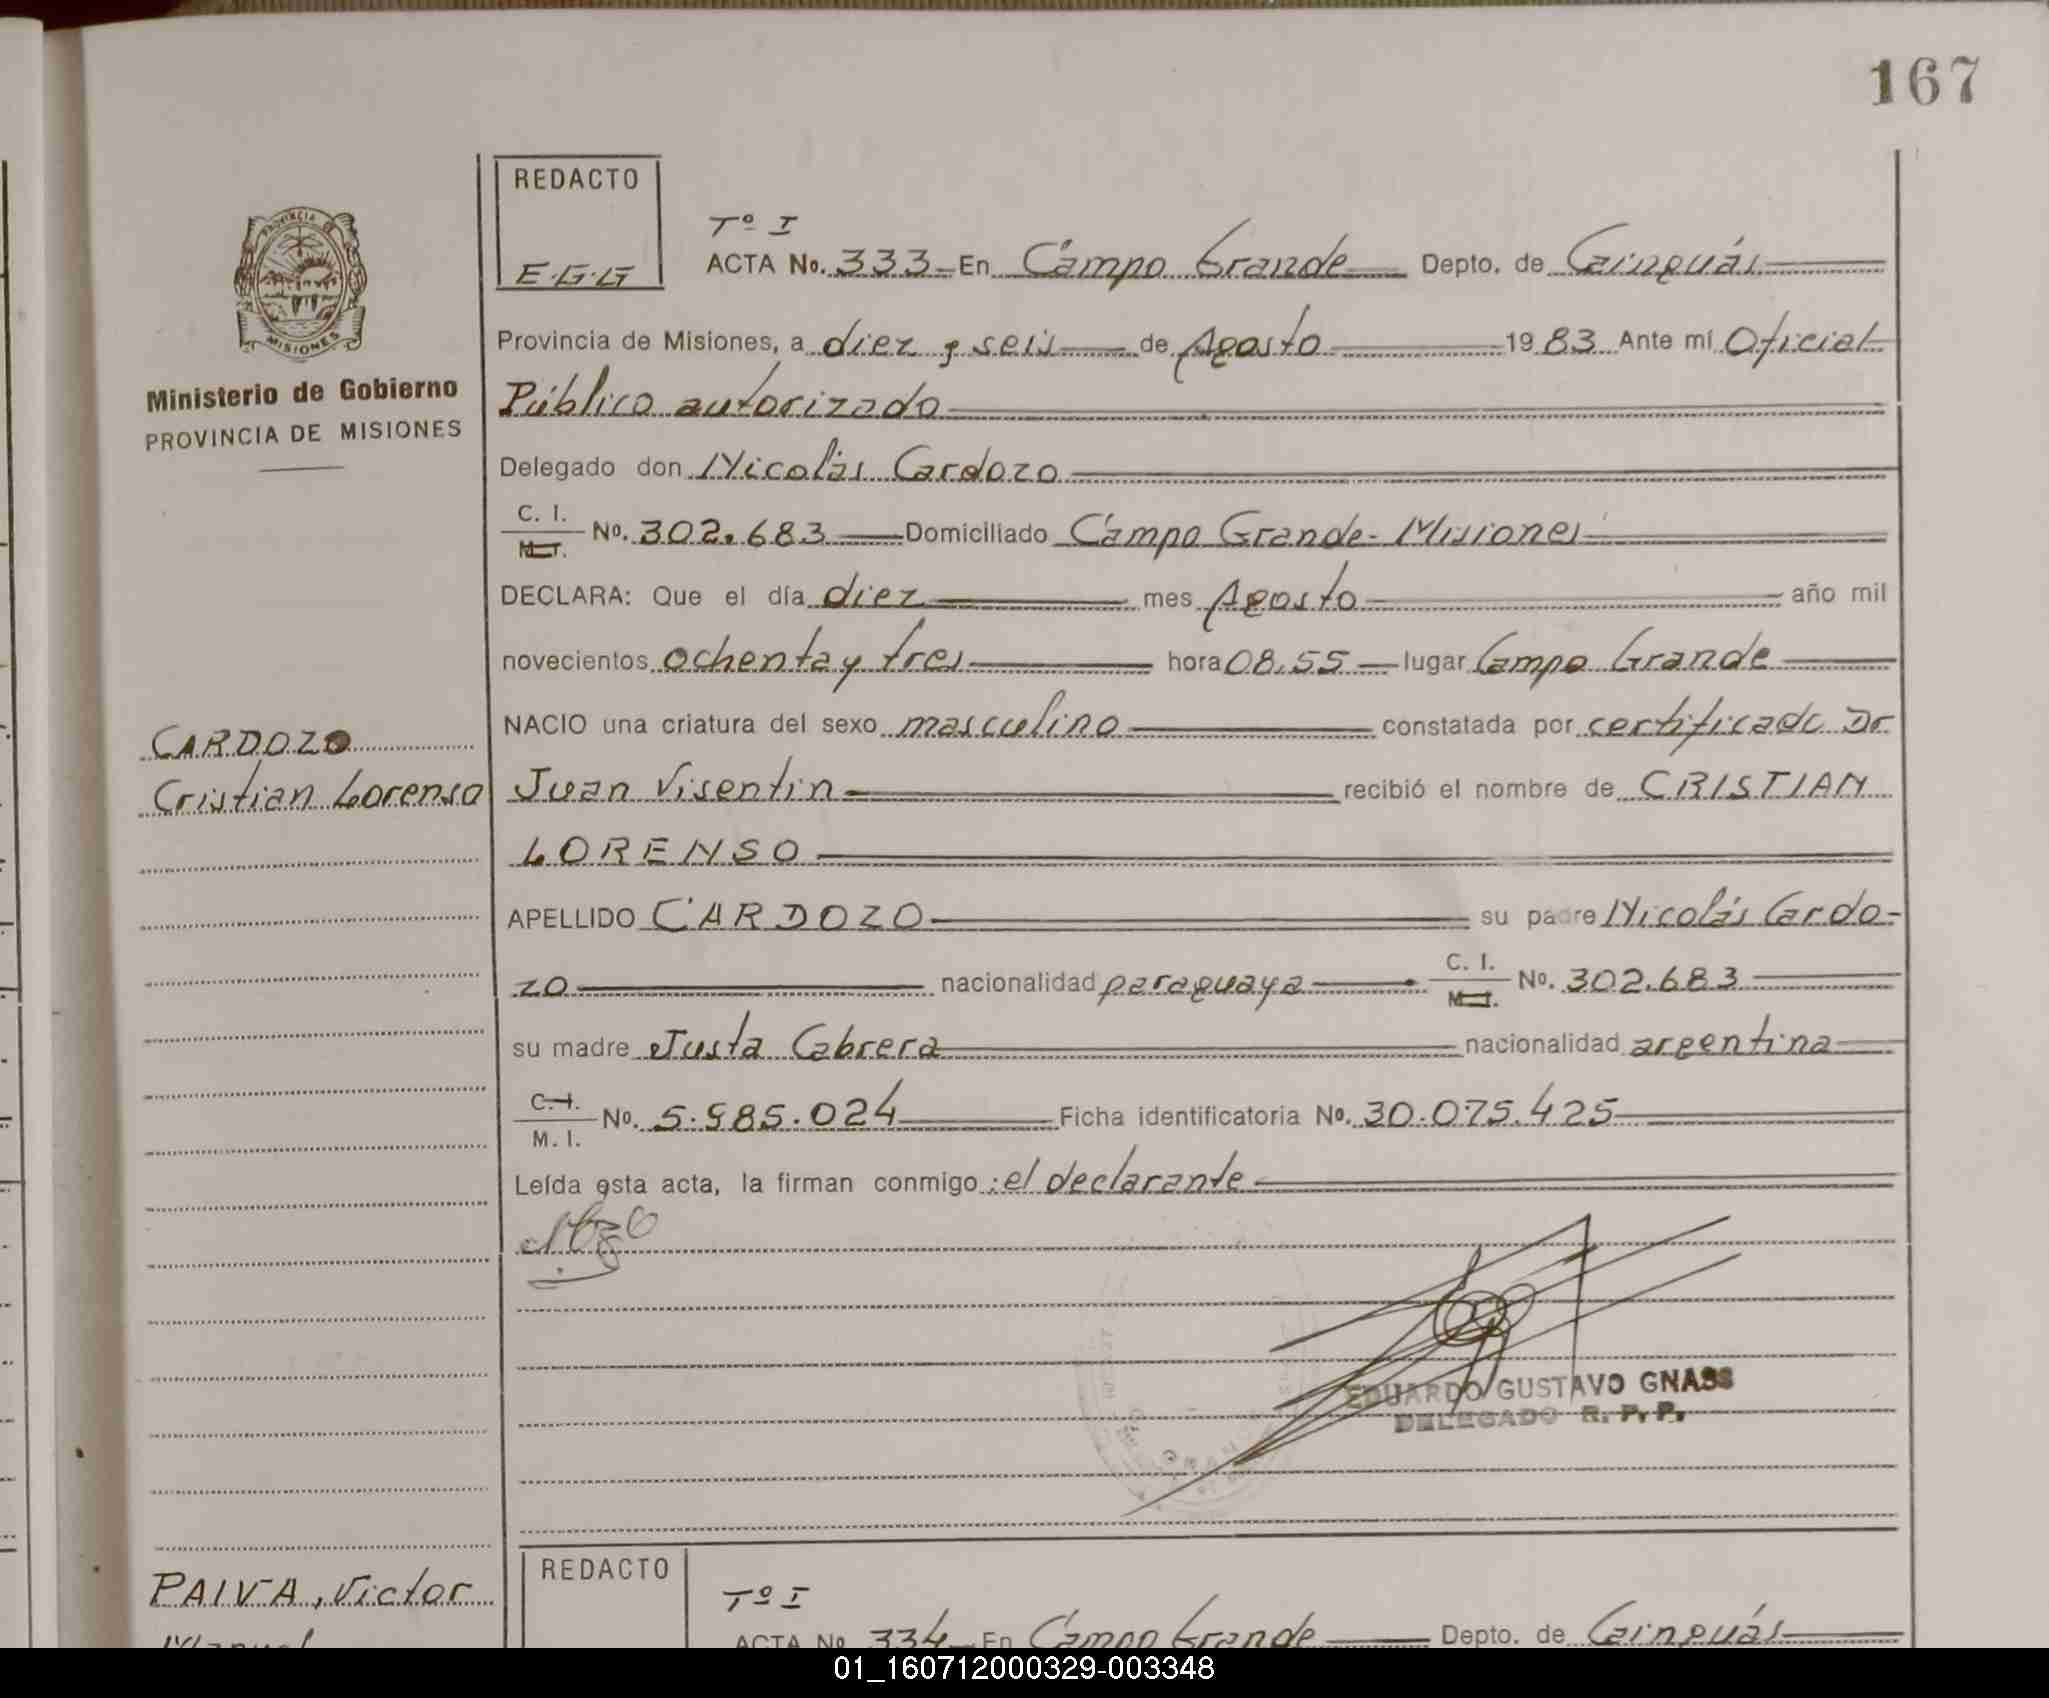 167
REDACTO
E.G.G
Tº I
ACTA No. 333 En Campo Grande Depto. de Cainguás
Provincia de Misiones, a diez y seis de Agosto 1983 Ante mí Oficial
Público autorizado
Delegado don Nicolás Cardozo
C. I.
M. I.
No. 302.683 Domiciliado Campo Grande - Misiones
DECLARA: Que el día diez mes Agosto año mil
novecientos ochenta y tres hora 08.55 lugar Campo Grande
NACIO una criatura del sexo masculino constatada por certificado Dr.
Juan Visentin recibió el nombre de CRISTIAN
LORENSO
APELLIDO CARDOZO su padre Nicolás Cardo-
zo nacionalidad paraguaya C. I. M. I. No. 302.683
su madre Justa Cabrera nacionalidad argentina
C. I.
M. I.
No. 5.985.024 Ficha identificatoria No. 30.075.425
Leída esta acta, la firman conmigo: el declarante
EDUARDO GUSTAVO GNASS
DELEGADO R. P. P.
PROVINCIA DE
MISIONES
Ministerio de Gobierno
PROVINCIA DE MISIONES
CARDOZO
Cristian Lorenso
PAIVA, Victor
Manuel
REDACTO
Tº I
ACTA No. 334 En Campo Grande Depto. de Cainguás
01_160712000329-003348